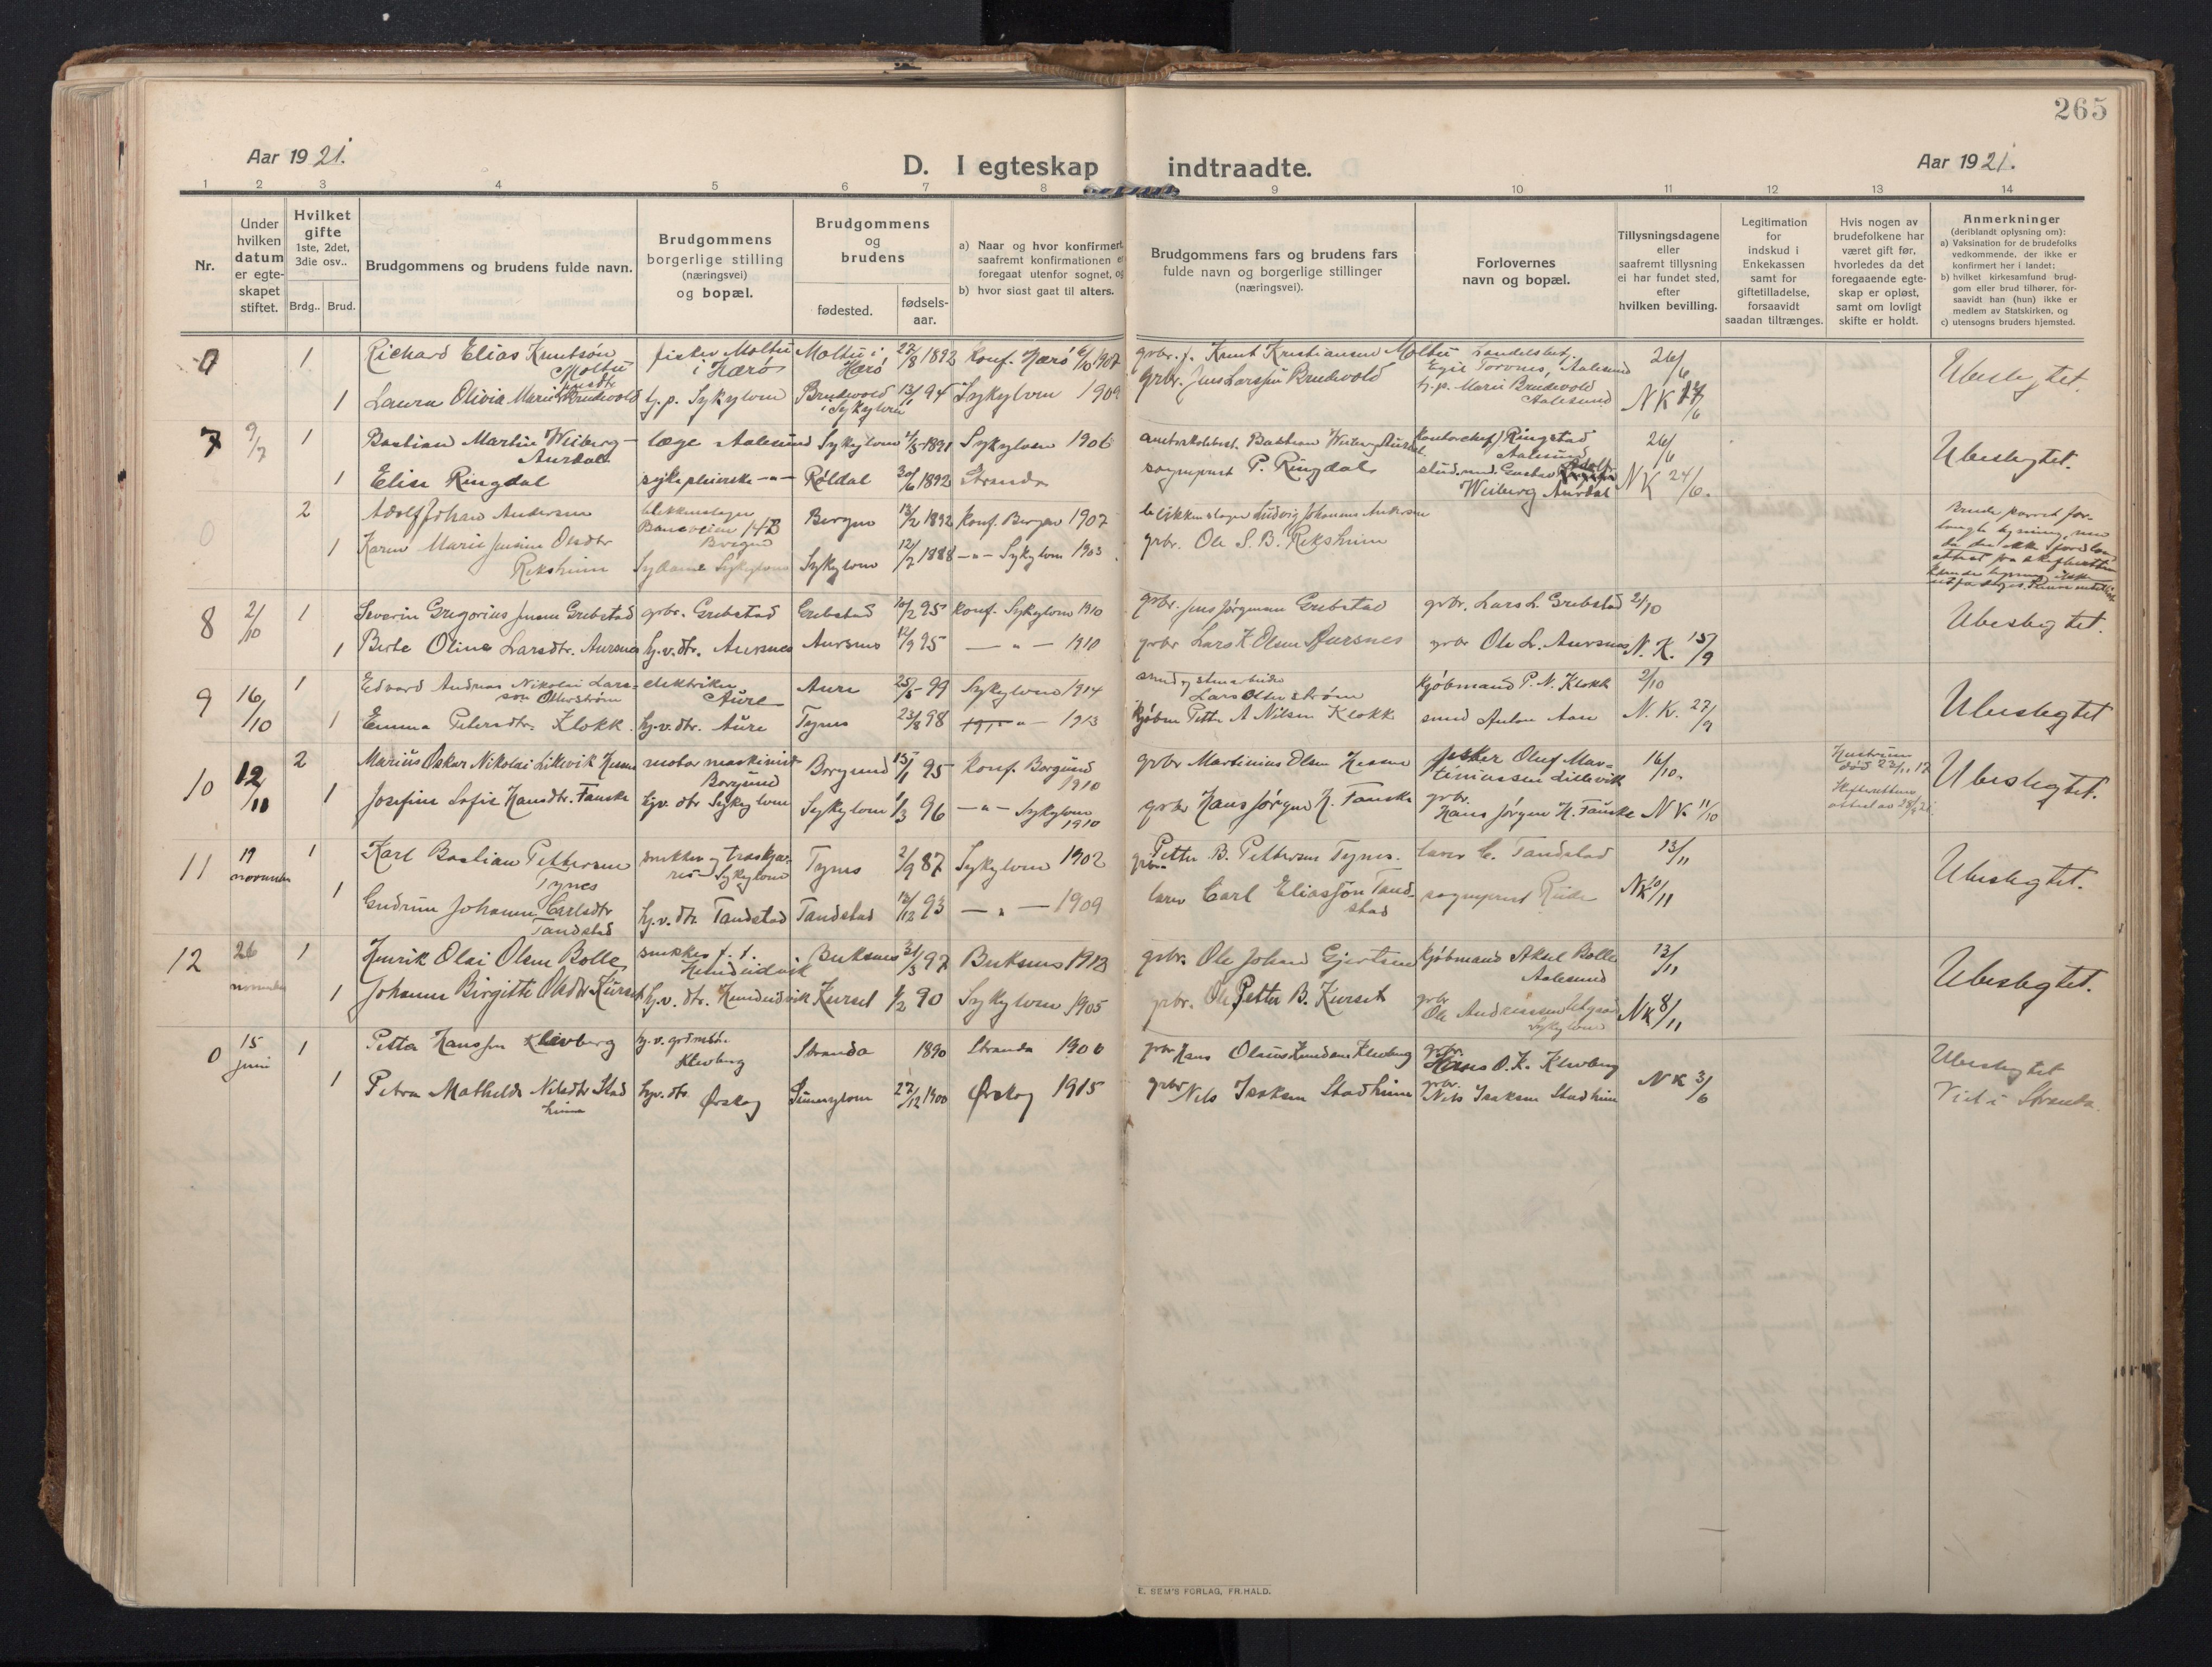 265
Aar 1921.
D. I egteskap indtraadte.
Aar 1921.
1 2 3 4 5 6 7 8 9 10 11 12 13 14
Nr.
Under hvilken datum er egte-skapet stiftet.
Hvilket gifte 1ste, 2det, 3die osv..
Brdg.. Brud.
Brudgommens og brudens fulde navn.
Brudgommens borgerlige stilling (næringsvei) og bopæl.
Brudgommens og brudens
fødested. fødsels-aar.
a) Naar og hvor konfirmert, saafremt konfirmationen er foregaat utenfor sognet, og
b) hvor sidst gaat til alters.
Brudgommens fars og brudens fars fulde navn og borgerlige stillinger (næringsvei).
Forlovernes navn og bopæl.
Tillysningsdagene eller saafremt tillysning ei har fundet sted, efter hvilken bevilling.
Legitimation for indskud i Enkekassen samt for giftetilladelse, forsaavidt saadan tiltrænges.
Hvis nogen av brudefolkene har været gift før, hvorledes da det foregaaende egte-skap er opløst, samt om lovligt skifte er holdt.
Anmerkninger (deriblandt oplysning om):
a) Vaksination for de brudefolks vedkommende, der ikke er konfirmert her i landet;
b) hvilket kirkesamfund brud-gom eller brud tilhører, for-saavidt han (hun) ikke er medlem av Statskirken, og
c) utensogns bruders hjemsted.
0 1 Richard Elias Knutsøn Moltu fisker Moltu i Hærø Moltu i Hærø 27/8 1892 Konf. Hærø 6/10 1907 grbr. f. Knut Kristiansen Moltu Egil Torvnes, Aalesund 26/6 Ubeslegtet.
1 Laura Olivia Marie Jensdtr Brudevold tj.p. Sykylven Brudevold i Sykylven 13/1 94 Sykylven 1909 grbr. Jens Larssen Brudevold tj.p. Marie Brudevold Aalesund NK 17/6
7 9/7 1 Bastian Martin Weiberg-Aurdal læge Aalesund Sykylven 1891 Sykylven 1906 Bastian Weiberg Aurdal kontorchef Ringstad Aalesund 26/6 Ubeslegtet.
1 Elise Ringdal sykepleierske -"- Röldal 30/6 1892 Stranda sogneprest P. Ringdal stud.med. Gustav Adolf Weiberg Aurdal NK 24/6.
0 2 Adolf Johan Andersen blikkenslager Baneveien 14B Bergen Bergen 13/2 1892 Konf. Bergen 1907 blikkenslager Ludvig Johannes Andersen
1 Karen Marie Jensine Olsdtr Rekshim Sydame Sykylven Sykylven 12/2 1888 -"- Sykylven 1903 grbr. Ole S. B. Rekshim
8 2/10 1 Severin Gregorius Jensen Grebstad grbr. Grebstad Grebstad 10/2 95 Konf. Sykylven 1910 grbr. Jens Jørgensen Grebstad grbr. Lars L. Grebstad 2/10 Ubeslegtet.
1 Berte Oline Larsdtr. Aursnes hj.v.dtr. Aursnes Aursnes 12/9 95 -"- 1910 grbr Lars K Olsen Aursnes grbr Ole L. Aursnes N. K. 15/9
9 16/10 1 Edvard Andreas Nikolai Lars-son Otterstrøm elektriker Aure Aure 25/5-99 Sykylven 1914 smed og stenarbeider Lars Otterstrøm kjøbmand P. N. Klokk 2/10 Ubeslegtet
1 Emma Petersdtr. Klokk. hj.v.dtr. Aure Tynes 23/8 98 -"- 1913 kjøbm Petter A Nilsen Klokk smed Anton Aure N. K. 27/9
10 12/11 2 Marius Oskar Nikolai Likevik Hessen motor maskinist Borgund Borgund 15/1 95 Konf. Borgund 1910 grbr Martinius Olsen Hessen fisker Oluf Mar-tinussen Lillevik 16/10. Hustruen död 23/11 17 Ubeslegtet.
1 Josefine Sofie Hansdtr. Fauske hj.v. dtr Sykylven Sykylven 1/3 96 -"- Sykylven 1910 grbr Hans Jørgen H. Fauske grbr. Hans Jørgen H. Fauske NK 11/10
11 19 november 1 Karl Bastian Pettersen Tynes snekker og træskjæ-rer Sykylven Tynes 2/9 87 Sykylven 1902 grbr. Petter B. Pettersen Tynes. lærer C. Tandstad 13/11 Ubeslegtet.
1 Gudrun Johanne Carlsdtr Tandstad hj.v. dtr Tandstad Tandstad 12/12 93 -"- 1909 lærer Carl Eliassøn Tand-stad sogneprest Riide NK 10/11
12 26 november 1 Henrik Olai Olsen Bolle snekker Hundeidvik Buksnes 31/3 97 Buksnes 1913 grbr. Ole Johan Gjertsen kjøbmand Aksel Bolle Aalesund 13/11 Ubeslegtet.
1 Johanne Birgitte Olsdtr Kurset hj.v. dtr. Hundeidvik Kurset 1/2 90 Sykylven 1905 grbr. Ole Petter B. Kurset grbr Ole Andreassen Sykylven NK 8/11
0 15 juni 1 Petter Hanssen Klevberg hj.v. grdmdr. Klevberg Stranda 1890 Stranda 1906 grbr Hans Olaus Knudsen Klevberg grbr. Hans O. K. Klevberg Ubeslegtet
1 Petra Mathilde Nilsdtr Stad-heim hj.v. dtr Ørskog Sunnylven 27/12 1900 Ørskog 1915 grbr Nils Isaksen Stadheim grbr. Nils Isaksen Stadheim NK 3/6 Viet i Stranda.
E. SEM'S FORLAG, FR.HALD.